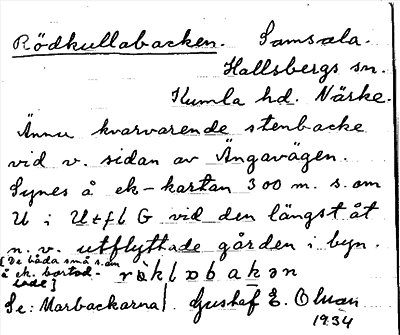 Rödkullabacken. Samsala.
Hallsbergs sn.
Kumla hd. Närke.
Ännu kvarvarende stenbacke
vid v. sidan av Ängavägen.
Synes å ek-kartan 300 m. s. om
U i Utfl G vid den längst åt
n. v. utflyttade gården i byn.
[De båda små s. om
å ek. bortod-
lade]
Se: Marbackarna. Gustaf E. Olsson
1934